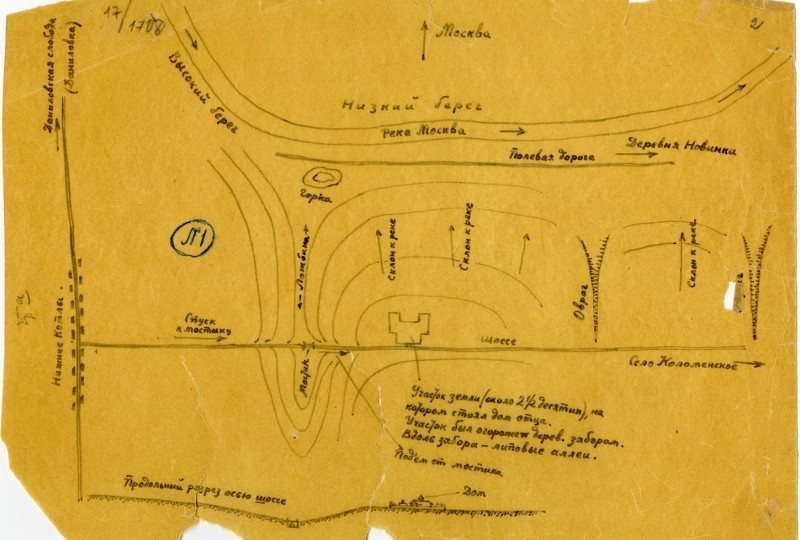 17/1708
2
Даниловская слобода
(Даниловка)
Москва
Высокий берег
Низкий берег
Река Москва
Полевая дорога
Деревня Новинки
Горка
№1
Ложбина
Склон к реке
Склон к реке
Склон к реке
Овраг
Нижние Котлы.
Спуск
к мостику
Мостик
Шоссе
Село Коломенское
Участок земли (около 2 1/2 десятин), на
котором стоял дом отца.
Участок был огорожен дерев. забором.
Вдоль забора – липовые аллеи.
Подъем от мостика
Продольный разрез осью шоссе
Дом